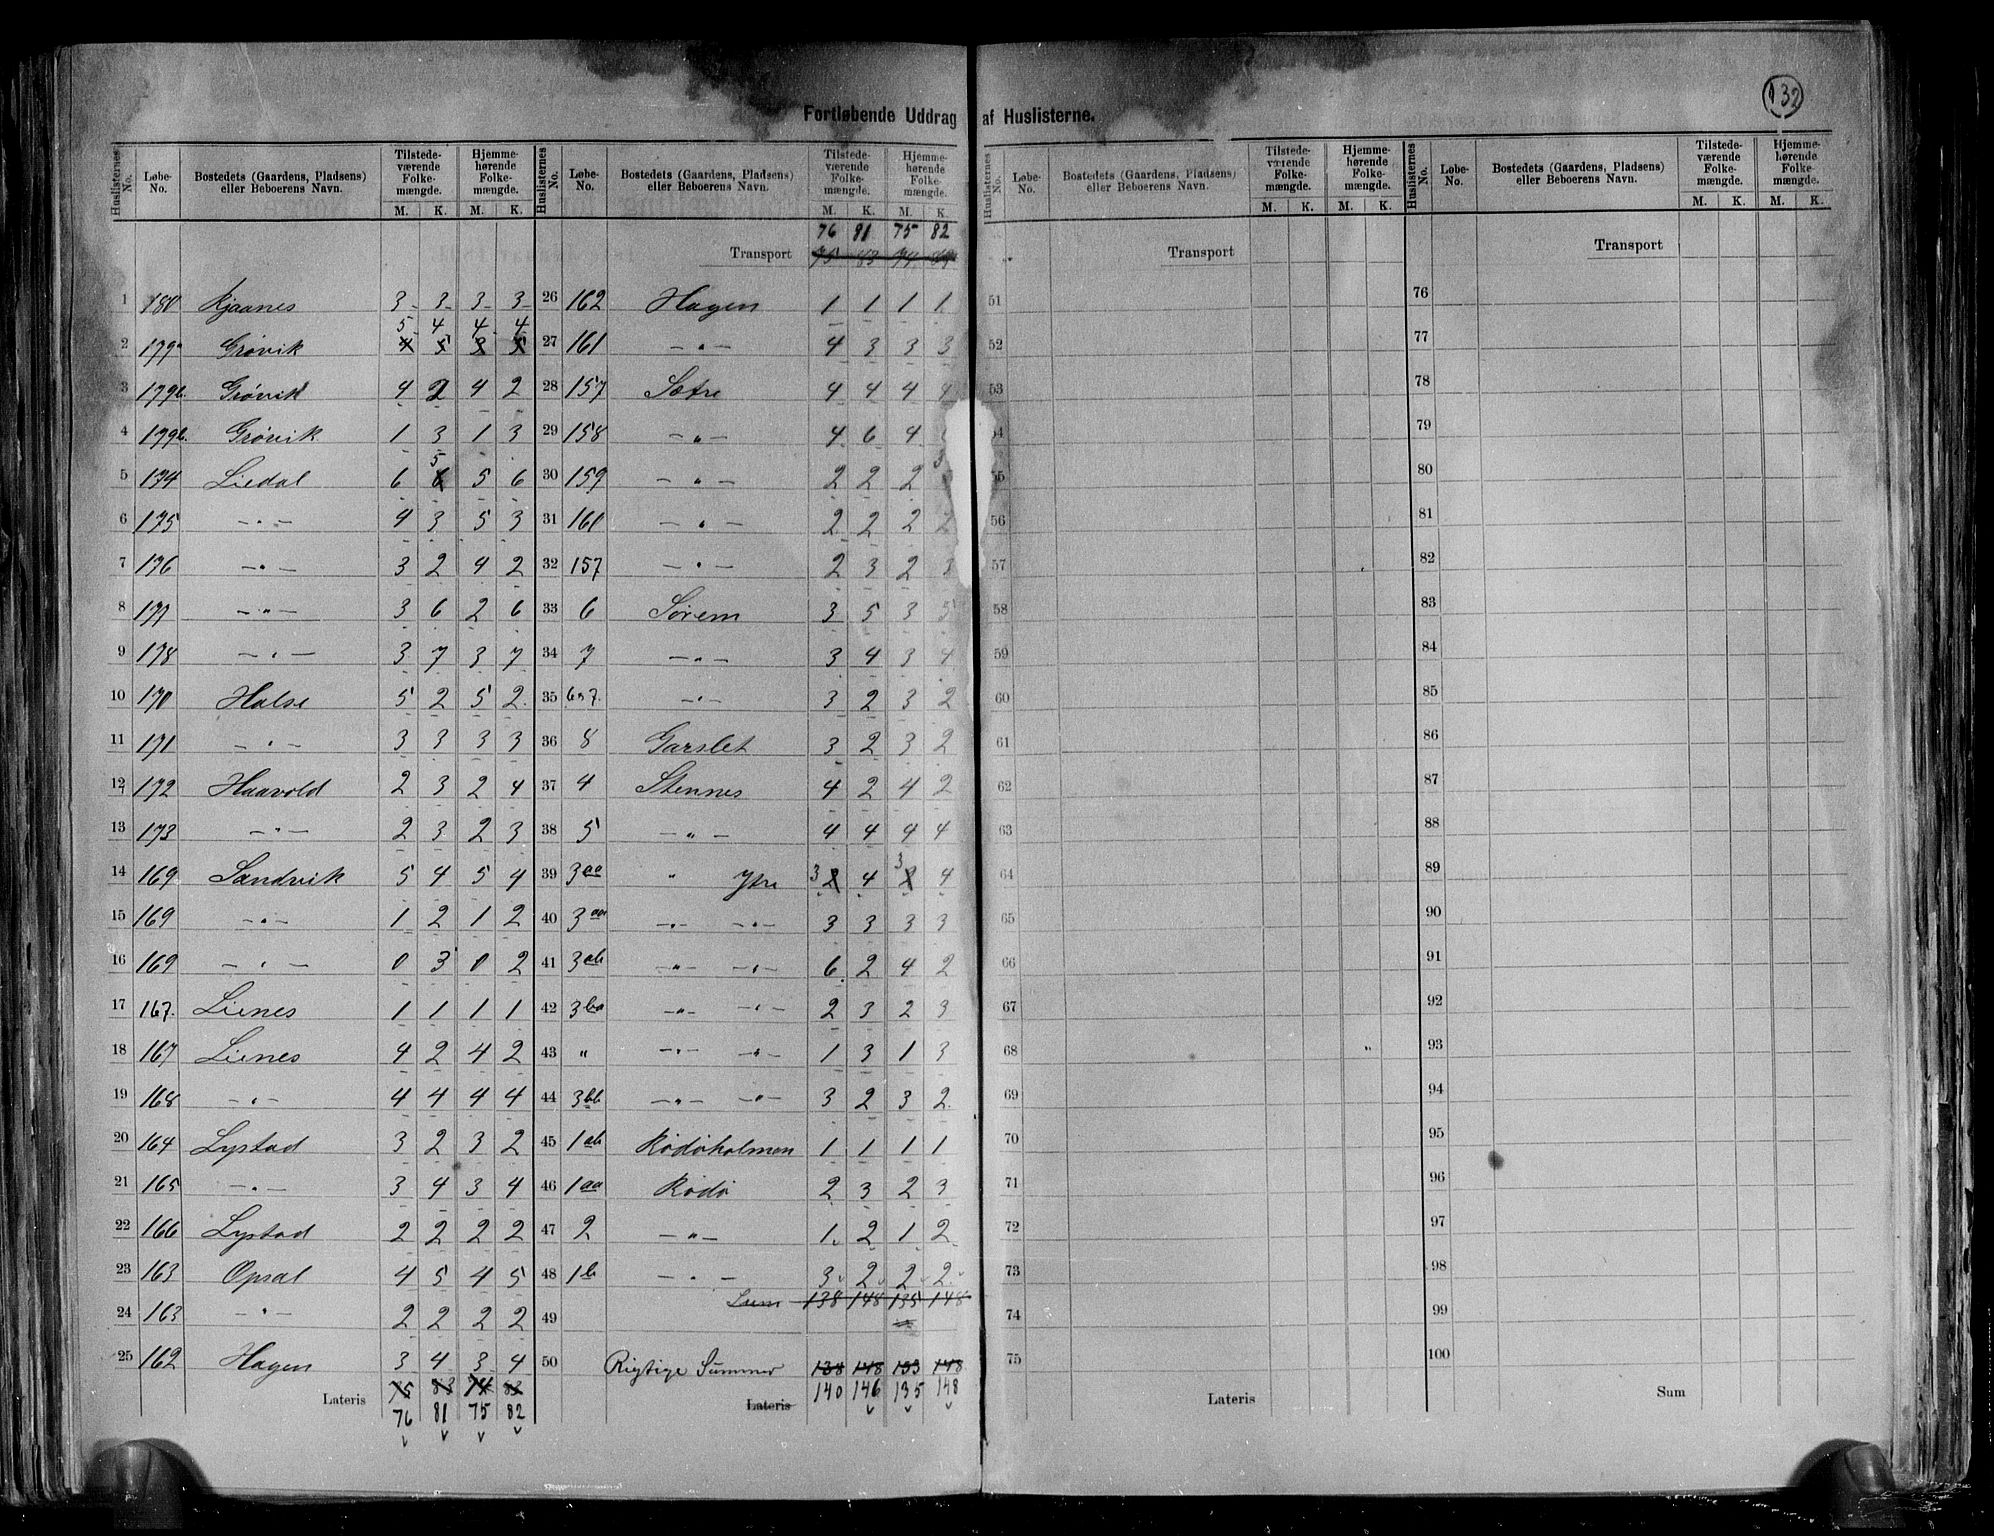 132
Fortløbende Uddrag af Huslisterne.
Huslisternes No. | Løbe-No. | Bostedets (Gaardens, Pladsens) eller Beboerens Navn. | Tilstedeværende Folkemængde. M. K. | Hjemmehørende Folkemængde. M. K.
1 180 Kjaanes 3 3 3 3
2 179a Grøvik 5 4 4 4
3 179b. Grøvik 4 2 4 2
4 179b. Grøvik 1 3 1 3
5 174 Liedal 6 5 5 6
6 175 —"— 4 3 5 3
7 176 —"— 3 2 4 2
8 177 —"— 3 6 2 6
9 178 —"— 3 7 3 7
10 170 Halse 5 2 5 2
11 171 —"— 3 3 3 3
12 172 Haavold 2 3 2 4
13 173 —"— 2 3 2 3
14 169 Sandvik 5 4 5 4
15 169 —"— 1 2 1 2
16 169 —"— 0 3 0 2
17 167. Lienes 1 1 1 1
18 167 Lienes 4 2 4 2
19 168 —"— 4 4 4 4
20 164 Lystad 3 2 3 2
21 165 —"— 3 4 3 4
22 166 Lystad 2 2 2 2
23 163 Opsal 4 5 4 5
24 163 —"— 2 2 2 2
25 162 Hagen 3 4 3 4
Lateris 75 83 74 83
76 81 75 82
Huslisternes No. | Løbe-No. | Bostedets (Gaardens, Pladsens) eller Beboerens Navn. | Tilstedeværende Folkemængde. M. K. | Hjemmehørende Folkemængde. M. K.
76 81 75 82
Transport 75 83 74 83
26 162 Hagen 1 1 1 1
27 161 —"— 4 3 3 3
28 157 Sætre 4 4 4 4
29 158 —"— 4 6 4
30 159 —"— 2 2 2 3
31 160 —"— 2 2 2 2
32 157 —"— 2 3 2 3
33 6 Sørem 3 5 3 5
34 7 —"— 3 4 3 4
35 6 " 7. —"— 3 2 3 2
36 8 Garslet 3 2 3 2
37 4 Stennes 4 2 4 2
38 5 —"— 4 4 4 4
39 3aa " Ytre 3 4 3 4
40 3aa —"— —"— 3 3 3 3
41 3ab —"— —"— 6 2 4 2
42 3ba —"— —"— 2 3 2 3
43 " —"— —"— 1 3 1 3
44 3bb —"— —"— 3 2 3 2
45 1ab Rødøholmen 1 1 1 1
46 1aa Rødø 2 3 2 3
47 2 —"— 1 2 1 2
48 1b —"— 3 2 2 2
Sum 138 148 135 148
49
50 Rigtige Summer 138 148 133 148
Lateris 140 146 135 148
Huslisternes No. | Løbe-No. | Bostedets (Gaardens, Pladsens) eller Beboerens Navn. | Tilstedeværende Folkemængde. M. K. | Hjemmehørende Folkemængde. M. K.
Transport
51
52
53
54
55
56
57
58
59
60
61
62
63
64
65
66
67
68
69
70
71
72
73
74
75
Lateris
Huslisternes No. | Løbe-No. | Bostedets (Gaardens, Pladsens) eller Beboerens Navn. | Tilstedeværende Folkemængde. M. K. | Hjemmehørende Folkemængde. M. K.
Transport
76
77
78
79
80
81
82
83
84
85
86
87
88
89
90
91
92
93
94
95
96
97
98
99
100
Sum